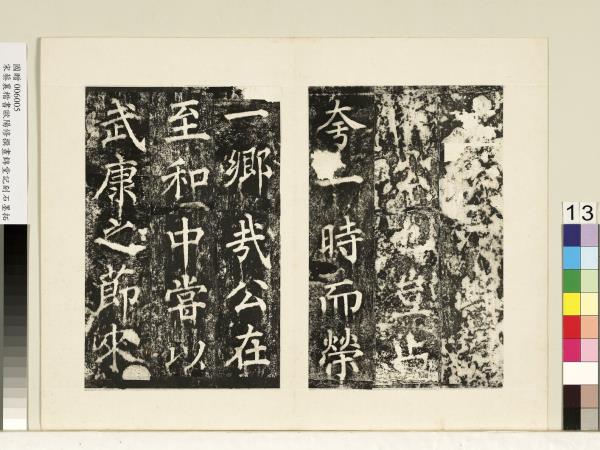 也豈止
夸一時而榮
一鄉哉公在
至和中嘗以
武康之節來
國贈 006005
宋蔡襄楷書歐陽修撰晝錦堂記刻石墨拓
13